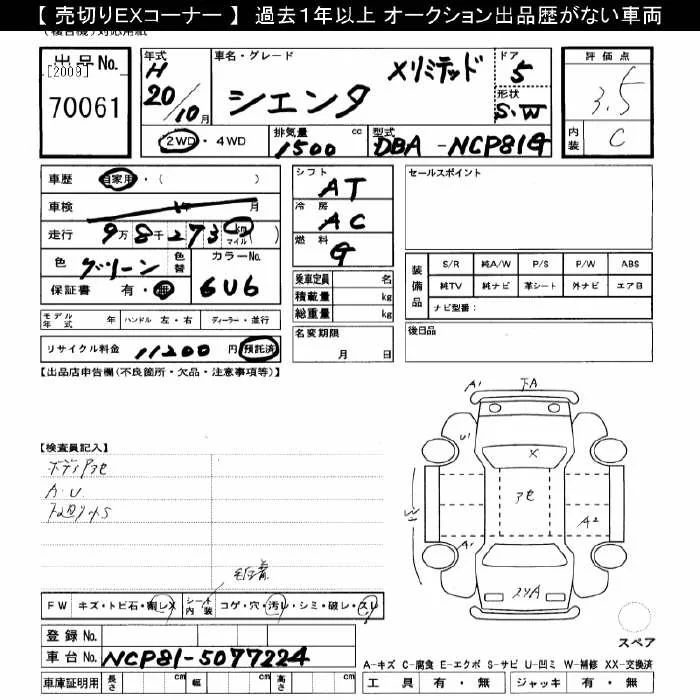 【 売切りEXコーナー 】 過去１年以上 オークション出品歴がない車両
出品No.
[2009]
70061
年式 H 20/10月
車名・グレード
シエンタ Xリミテッド
ドア 5
形状 S.W
評価点
3.5
内装 C
2WD・4WD
排気量 1500 cc
型式 DBA-NCP81G
車歴 自家用・( )
車検 年 月
走行 9万8千273 km マイル ( )
色 グリーン 色替
カラーNo. 6U6
保証書 有・無
シフト AT
冷房 AC
燃料 G
乗車定員 名
積載量 kg
総重量 kg
名変期限
月 日
セールスポイント
装備品
S/R 純A/W P/S P/W ABS
純TV 純ナビ 革シート 外ナビ エアB
ナビ型番：
後日品
モデル年式 年 ハンドル 左・右 ディーラー・並行
リサイクル料金 11200 円 預託済
【出品店申告欄(不良箇所・欠品・注意事項等)】
【検査員記入】
ボディアセ
A.U
下廻りサS
A1 下A
U1
X
アセ
W
A2
A1
2YA
FW キズ・トビ石・割レX シート内装 コゲ・穴・汚レ・シミ・破レ・スレ
登録 No.
車台 No. NCP81-5077224
スペア
A-キズ C-腐食 E-エクボ S-サビ U-凹ミ W-補修 XX-交換済
車庫証明用 長さ cm 幅 cm 高さ cm
工具 有・無 ジャッキ 有・無